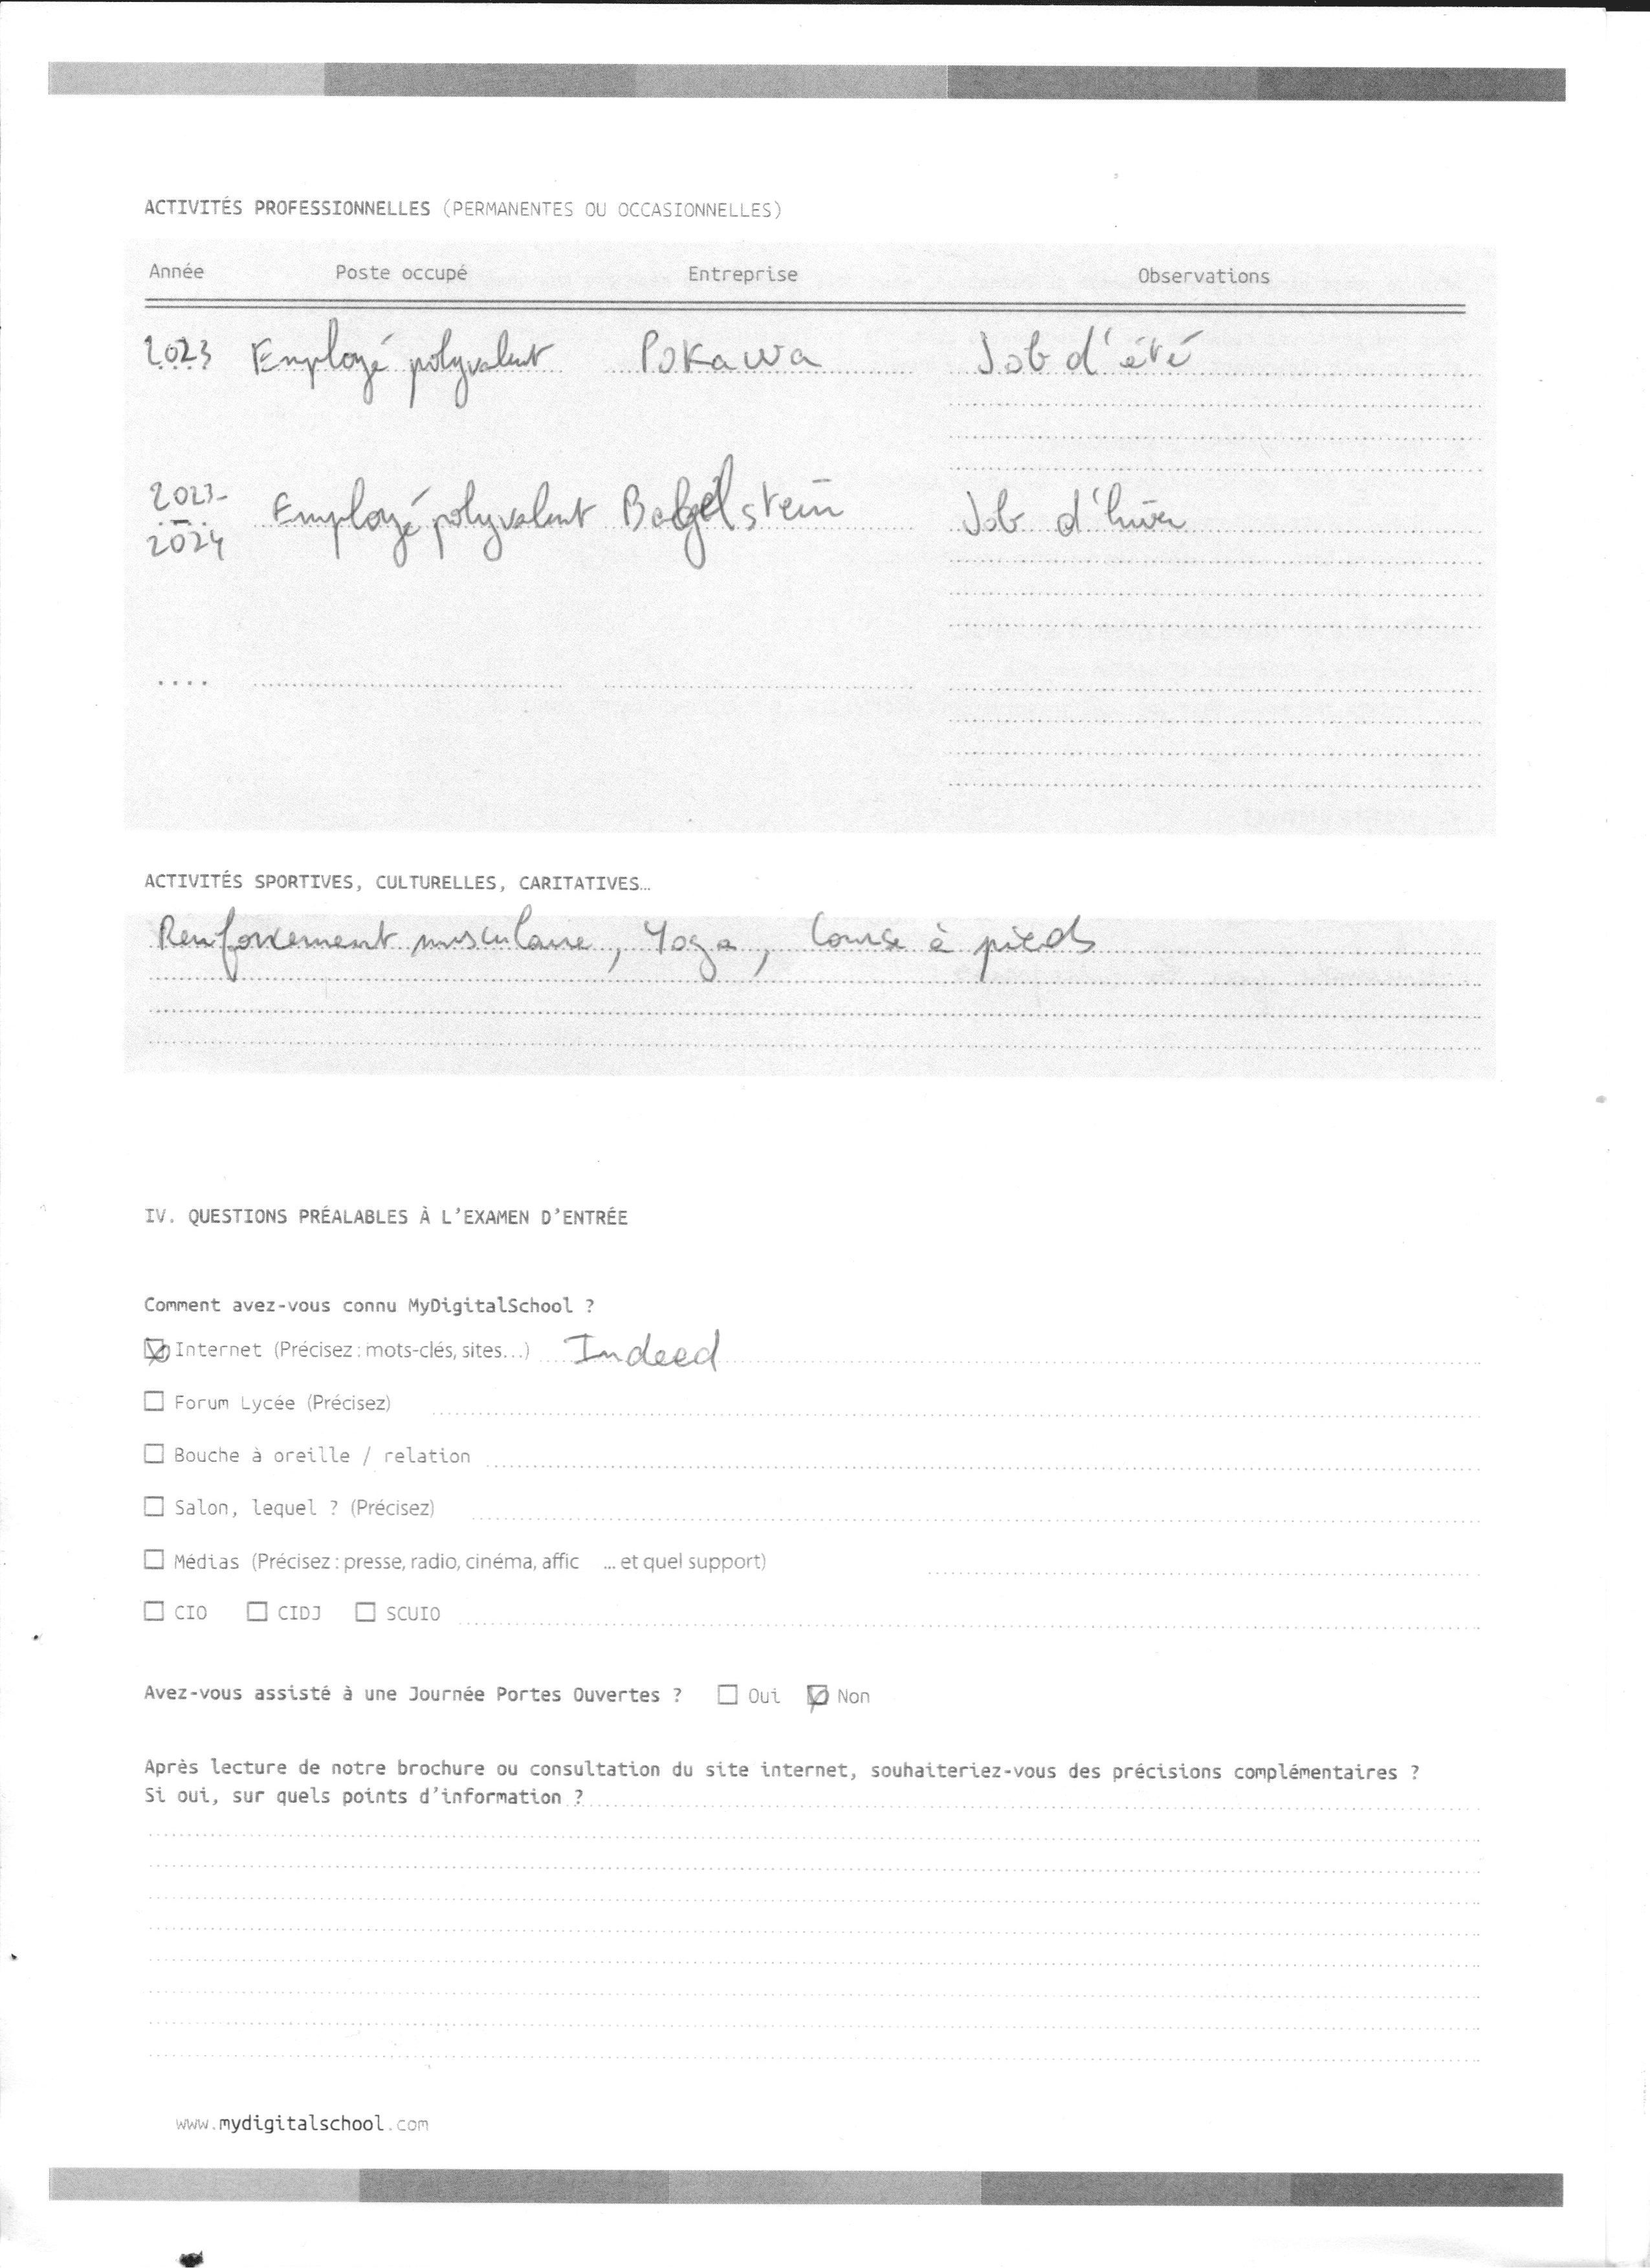 ACTIVITÉS PROFESSIONNELLES (PERMANENTES OU OCCASIONNELLES)
Année Poste occupé Entreprise Observations
2023 Employé polyvalent Pokawa Job d'été
2023-
2024 Employé polyvalent Bagelstein Job d'hiver
....
ACTIVITÉS SPORTIVES, CULTURELLES, CARITATIVES…
Renforcement musculaire, Yoga, Course à pieds
IV. QUESTIONS PRÉALABLES À L'EXAMEN D'ENTRÉE
Comment avez-vous connu MyDigitalSchool ?
Internet (Précisez : mots-clés, sites...) Indeed
Forum Lycée (Précisez)
Bouche à oreille / relation
Salon, lequel ? (Précisez)
Médias (Précisez : presse, radio, cinéma, affic ... et quel support)
CIO CIDJ SCUIO
Avez-vous assisté à une Journée Portes Ouvertes ? Oui Non
Après lecture de notre brochure ou consultation du site internet, souhaiteriez-vous des précisions complémentaires ?
Si oui, sur quels points d'information ?
www.mydigitalschool.com